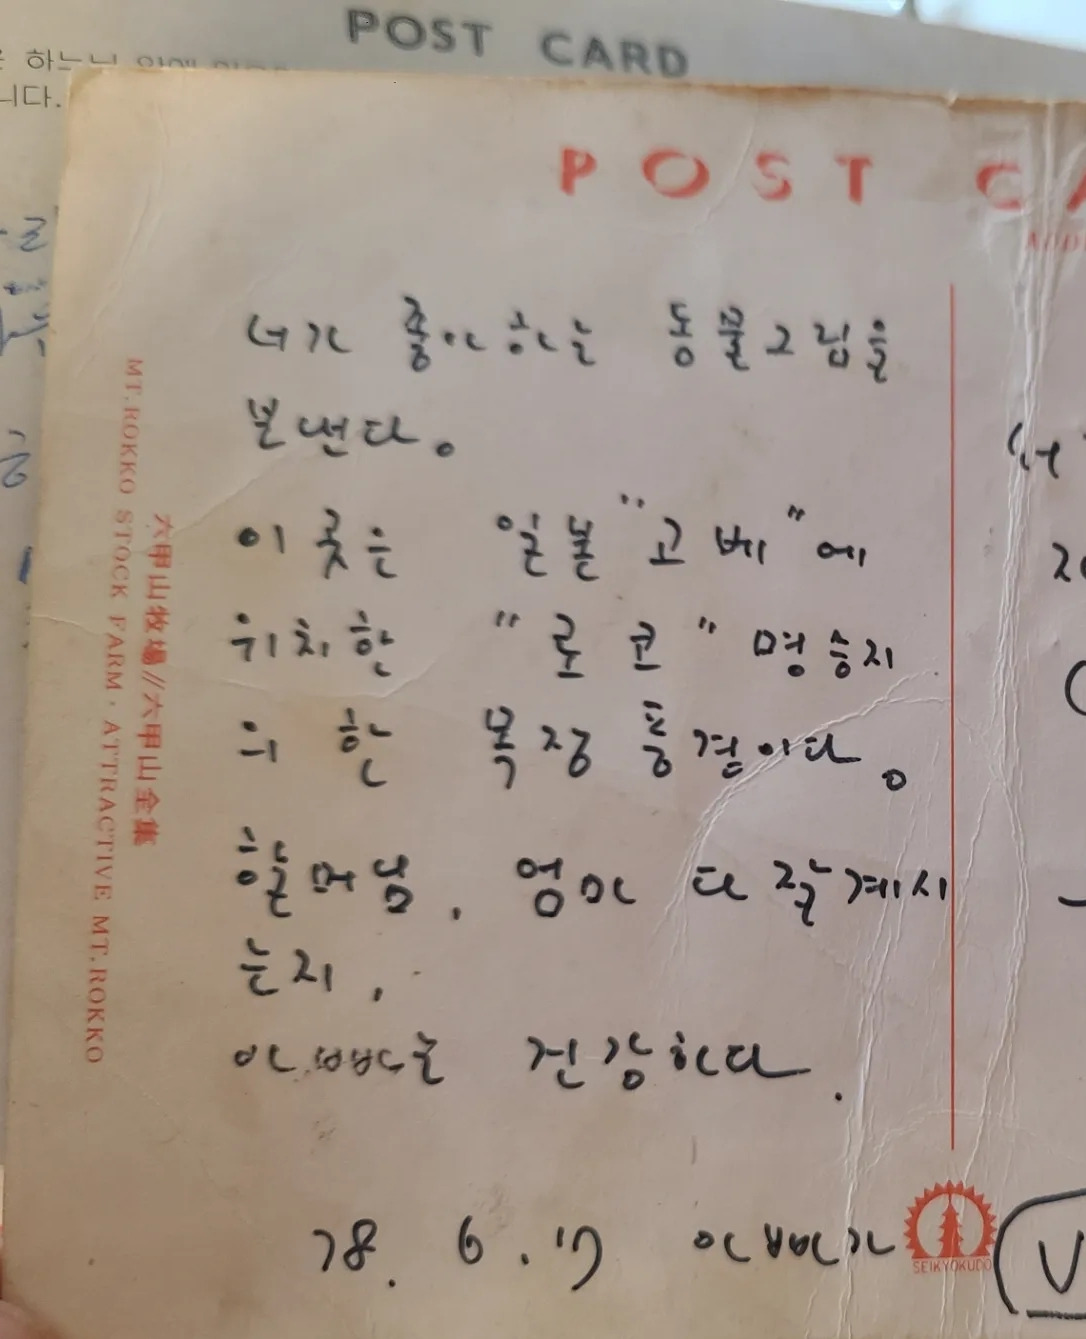 POST CARD
니다.
POST
너가 좋아하는 동물그림을
보낸다。
이 곳은 일본 "고베"에
위치한 "로코" 명승지
의 한 목장 풍경이다。
할머님, 엄마 다 잘 계시
는지,
아빠는 건강하다.
78. 6. 17 아빠가
六甲山牧場//六甲山全集
MT. ROKKO STOCK FARM · ATTRACTIVE MT. ROKKO
SEIKYOKUDO